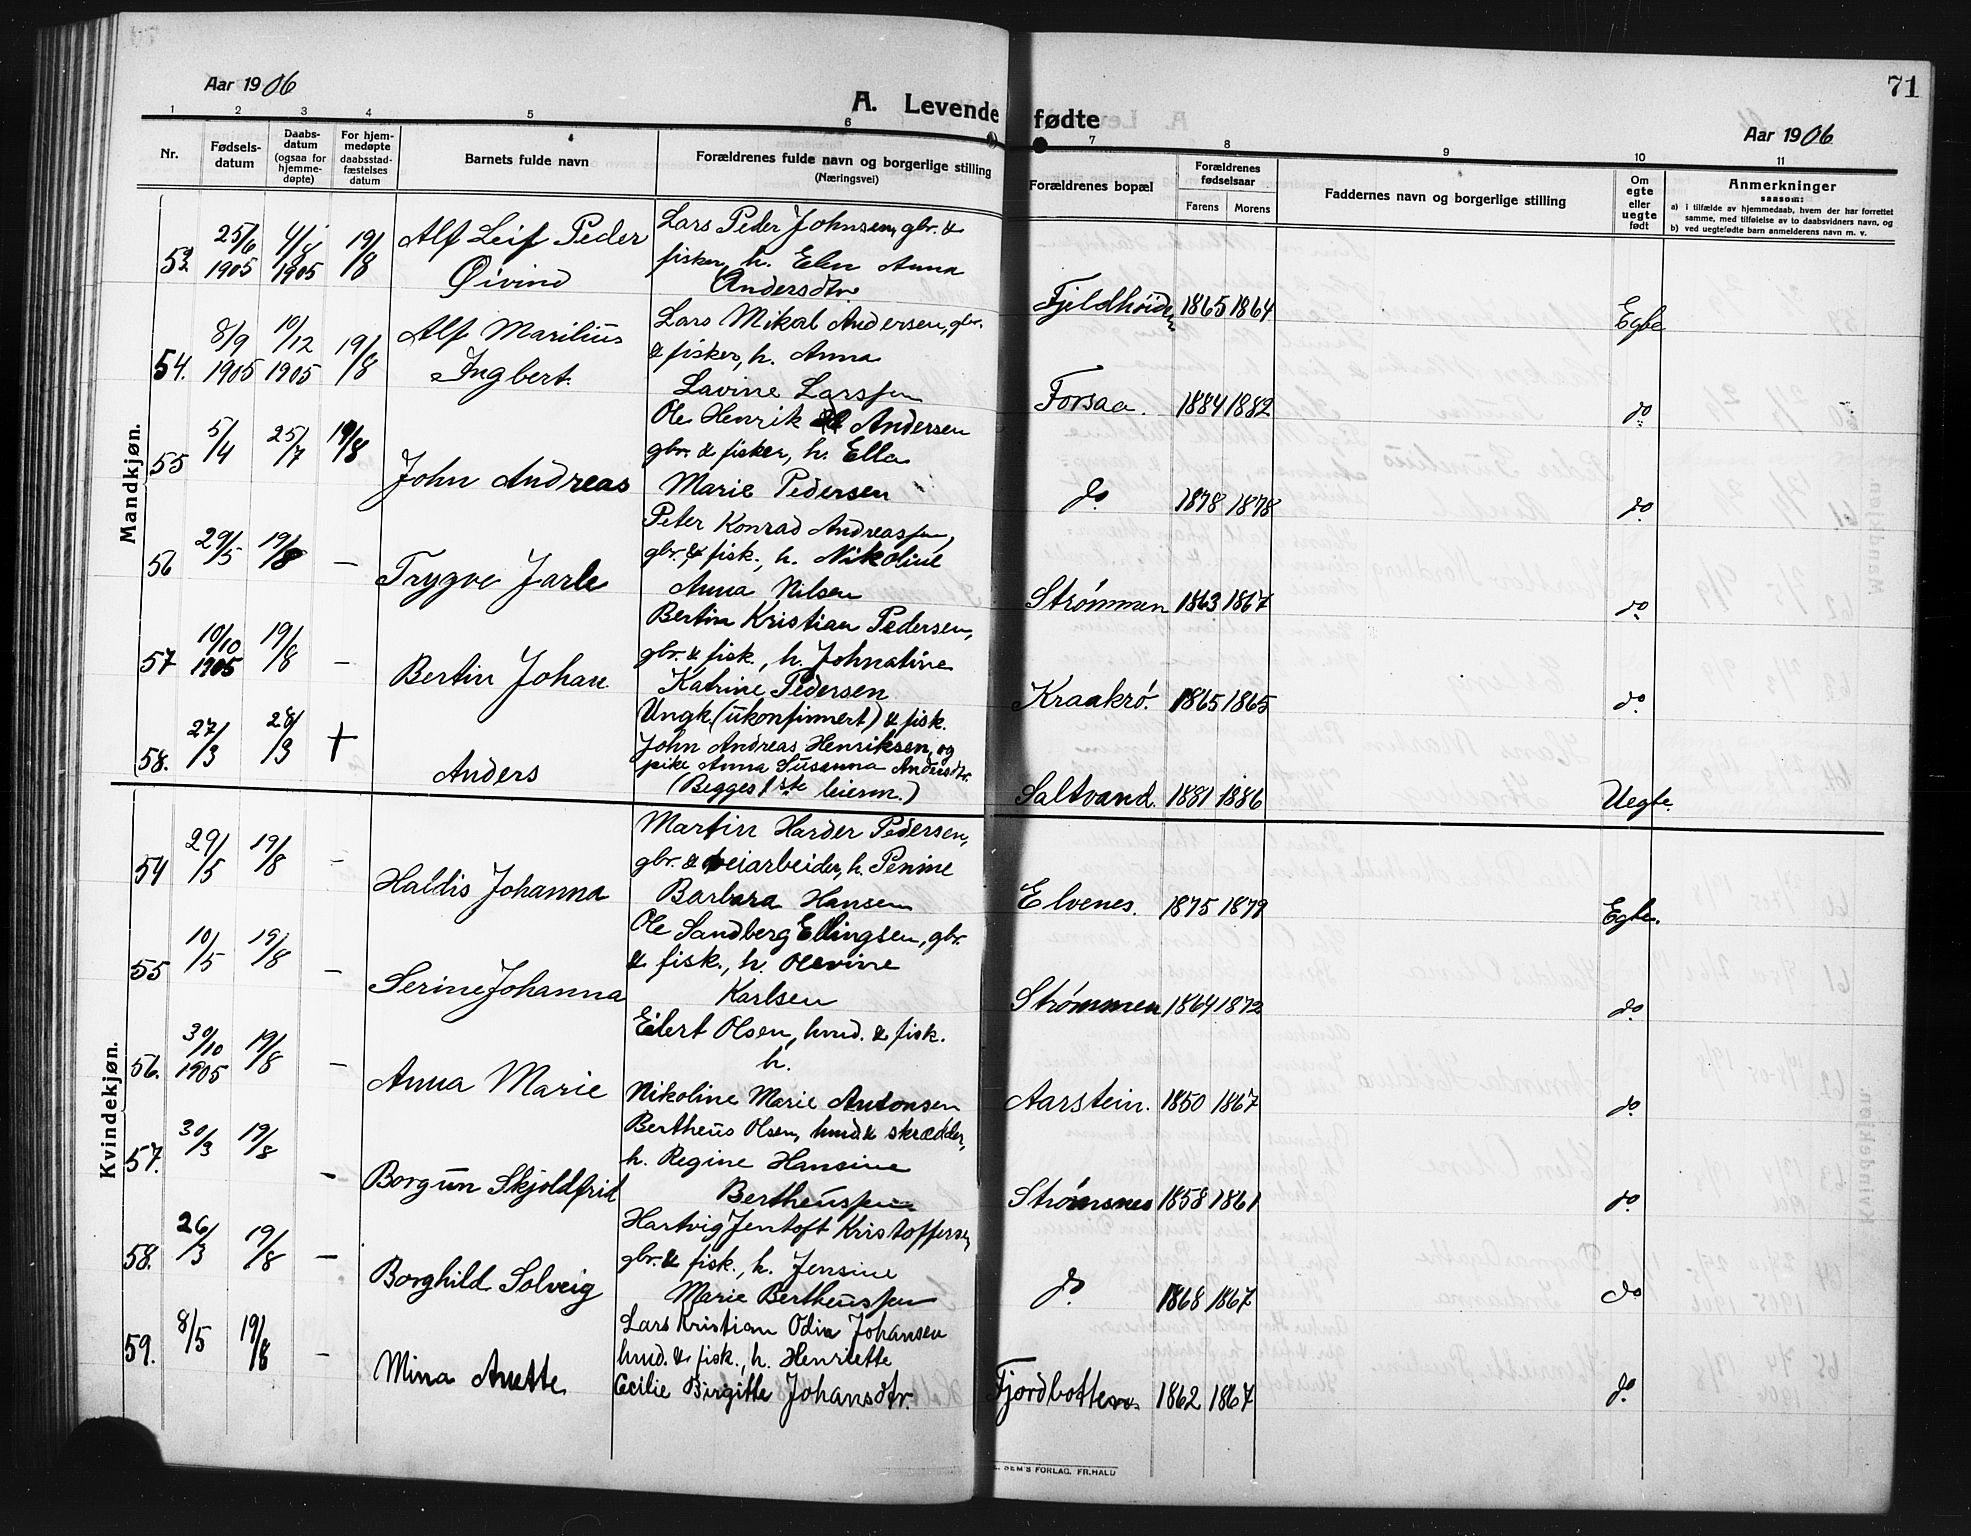 71
Aar 1906
A. Levende fødte
Aar 1906
1 2 3 4 5 6 7 8 9 10 11
Nr.
Fødsels-
datum
Daabs-
datum
(ogsaa for
hjemme-
døpte)
For hjem-
medøpte
daabsstad-
fæstelses
datum
Barnets fulde navn
Forældrenes fulde navn og borgerlige stilling
(Næringsvei)
Forældrenes bopæl
Forældrenes
fødselsaar
Farens Morens
Faddernes navn og borgerlige stilling
Om
egte
eller
uegte
født
Anmerkninger
saasom:
a) i tilfælde av hjemmedaab, hvem der har forrettet
samme, med tilføielse av to daabsvidners navn, og
b) ved uegtefødte barn anmelderens navn m. v.
Mandkjøn.
53. 25/6 1905 4/8 1905 19/8 Alf Leif Peder
Øivind
Lars Peder Johnsen, gbr. &
fisker, h. Elen Anna
Andersdtr
Fjeldhøiden 1865 1864 Egte
54. 8/9 1905 10/12 1905 19/8 Alf Marilius
Ingbert.
Lars Mikal Andersen, gbr.
& fisker, h. Anna
Lavine Larssen
Forsaa. 1884 1882 do
55 5/4 25/7 19/8 John Andreas
Ole Henrik Andersen
gbr. & fisker, h. Ella
Marie Pedersen
do. 1878 1878 do
56 29/5 19/8 — Trygve Jarle
Peter Konrad Andreassen,
gbr. & fisk., h. Nikoline
Anna Nilsen
Strømmen 1863 1867 do
57 10/10 1905 19/8 — Bertin Johan
Bertin Kristian Pedersen,
gbr. & fisk., h. Johnatine
Katrine Pedersen
Kraakrø. 1865 1865 do
58. 27/3 28/3 + Anders
Ungk. (ukonfirmert) & fisk.
John Andreas Henriksen, og
pike Anna Susanna Andersdtr.
(Begges 1ste leierm.)
Saltvand. 1881 1886 Uegte.
Kvindekjøn.
54 29/5 19/8 — Haldis Johanna
Martin Harder Pedersen,
gbr. & veiarbeider, h. Penine
Barbara Hansen
Elvenes. 1875 1879 Egte.
55 10/5 19/8 — Serine Johanna
Ole Sandberg Ellingsen, gbr.
& fisk., h. Olevine
Karlsen
Strømmen 1864 1872 do
56. 30/10 1905 19/8 — Anna Marie
Eilert Olsen, hmd. & fisk.
h.
Nikoline Marie Antonsen
Aarstein. 1850 1867 do
57. 30/3 19/8 — Borgun Skjoldfrid
Bertheus Olsen, hmd. & skrædder,
h. Regine Hansine
Bertheussen
Strømsnes 1858 1861 do
58. 26/3 19/8 — Borghild Solveig
Hartvig Jentoft Kristoffersen,
gbr. & fisk., h. Jensine
Marie Bertheussen
do. 1868 1867 do
59. 8/5 19/8 — Mina Anette
Lars Kristian Odin Johansen
hmd. & fisk., h. Henriette
Cecilie Birgitte Johansdtr.
Fjordbotten 1862 1867 do
SEM'S FORLAG. FR.HALD